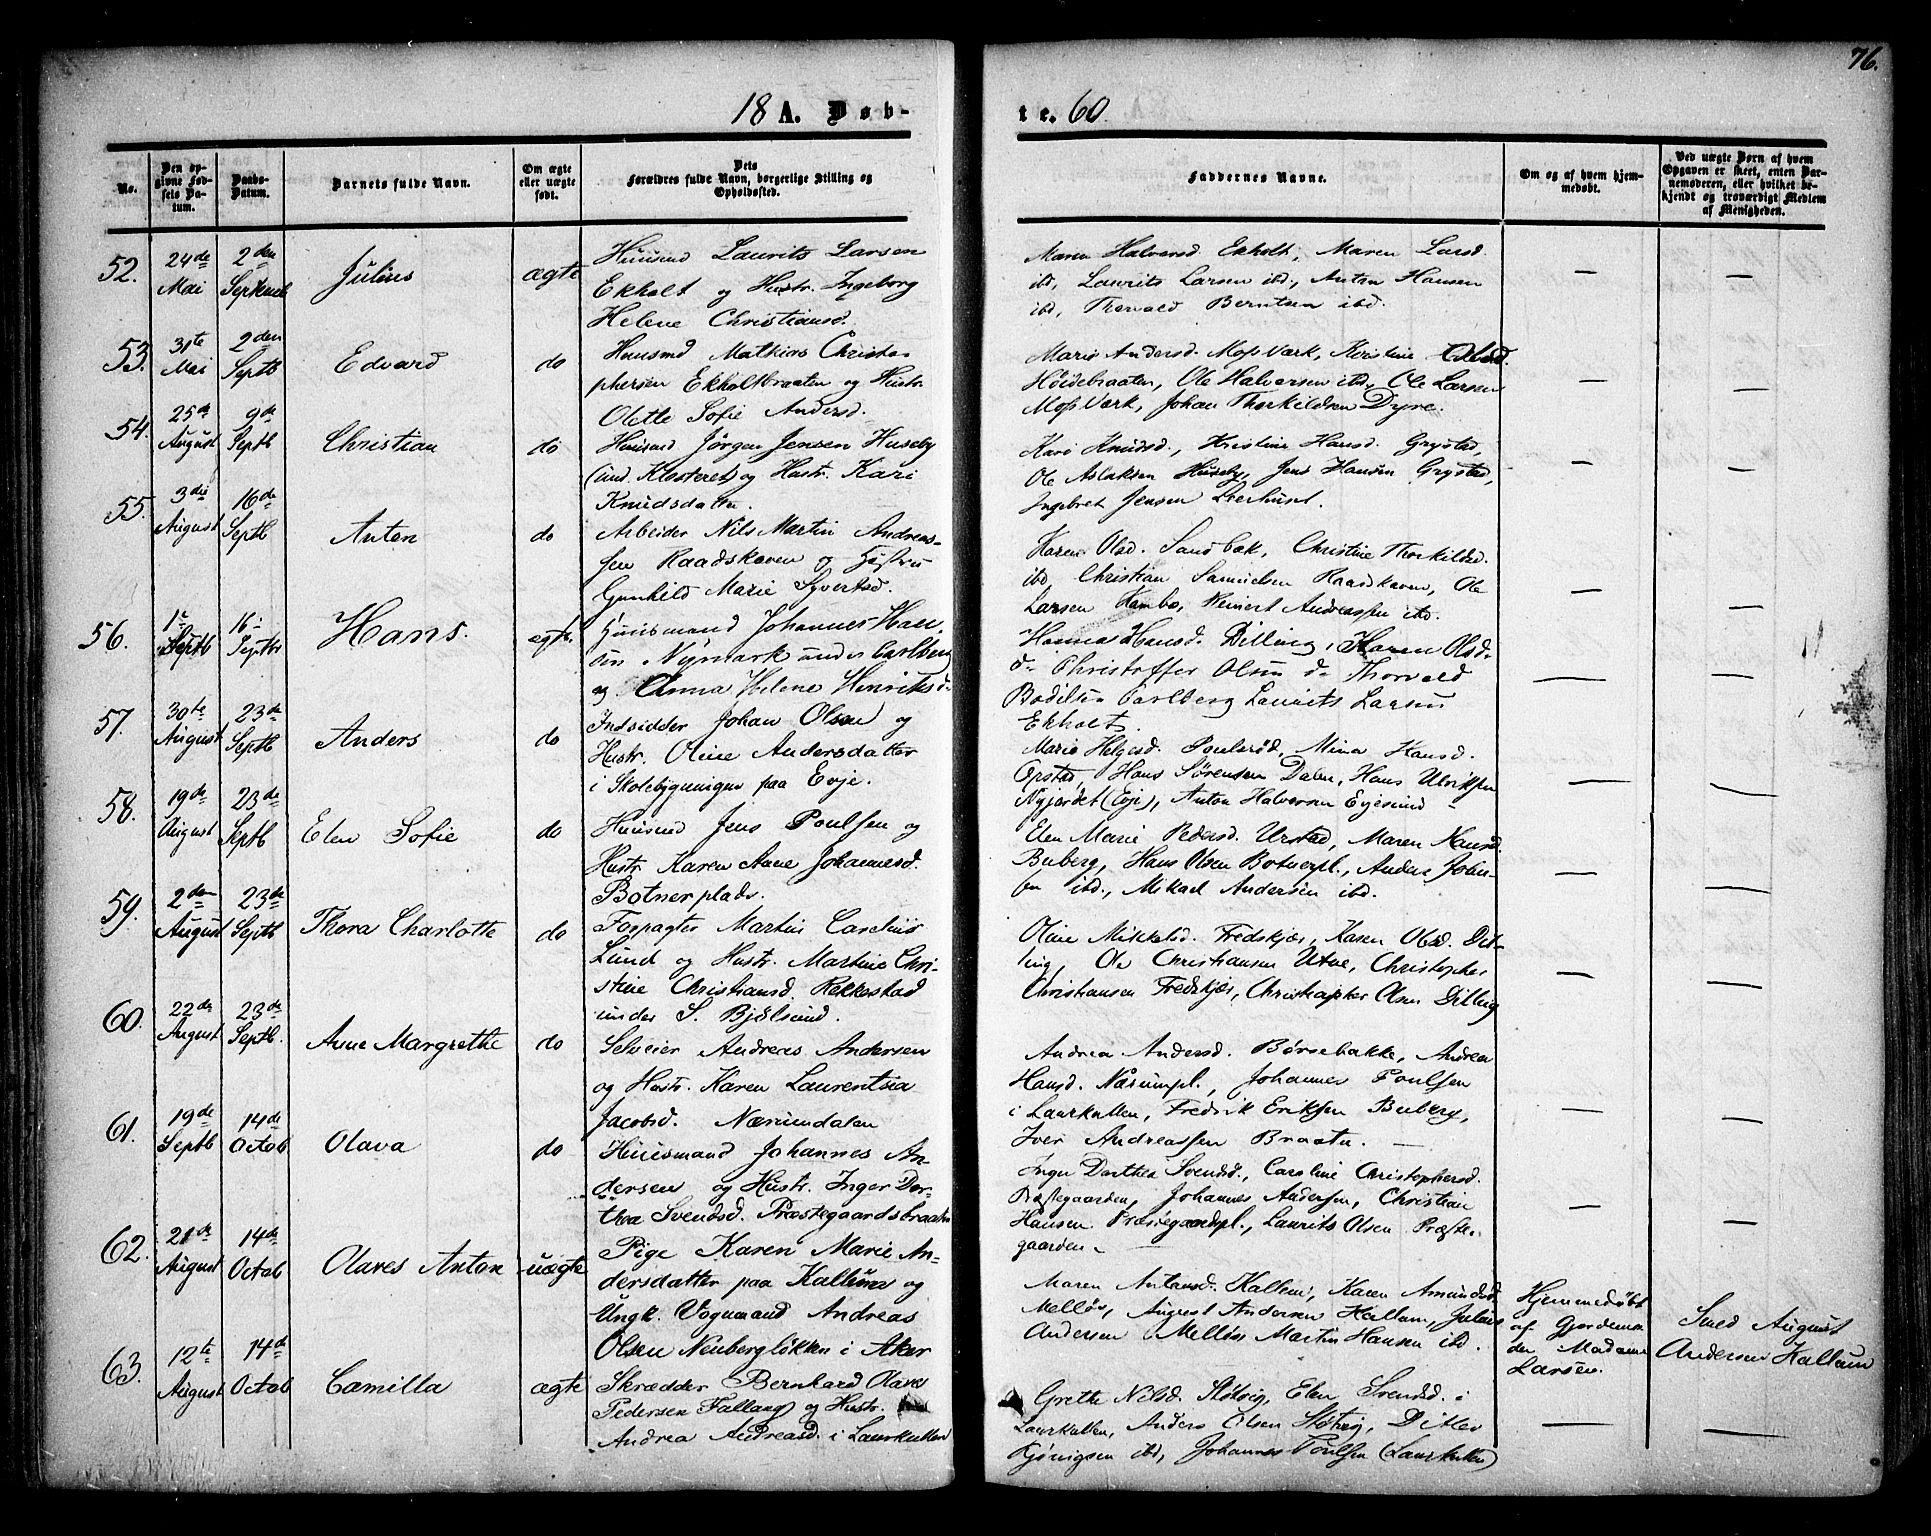 76.
18 A. Døb-
te. 60
No.
Den op-
givne Fød-
sels Da-
tum.
Daabs-
Datum.
Barnets fulde Navn.
Om ægte
eller uægte
født.
Dets
Forældres fulde Navn, borgerlige Stilling og
Opholdssted.
Faddernes Navne.
Om og af hvem hjem-
medøbt.
Ved uægte Børn af hvem
Opgaven er skeet, enten Bar-
nemoderen, eller hvilket be-
kjendt og troværdigt Medlem
af Menigheden.
52.
24de
Mai
2den
Septemb
Julius
ægte
Huusmd Laurits Larsen
Ekholt og Hustr. Ingeborg
Helene Christiansd.
Maren Halversd Ekholt, Maren Larsd.
ibd, Laurits Larsen ibd., Anton Hansen
ibd, Thorvald Berntsen ibd.
53.
31te
Mai
2den
Septb
Edvard
do
Huusmd Mathias Christo-
phersen Ekholtbraaten og Hustr.
Olette Sofie Andersd.
Marie Andersd. Moss Værk, Kristine Olsd.
Høidebraaten, Ole Halversen ibd., Ole Larsen
Moss Værk, Johan Thorkildsen Dyre.
54.
25de
August
9de
Septb
Christian
do
Huusmd Jörgen Jensen Huseby
(und. Klosteret) og Hustr. Kari
Knudsdatter.
Kari Knudsd., Kristine Hansd. Grystad,
Ole Aslaksen Huseby, Jens Hansen Grystad,
Ingebret Jensen Leerhuset.
55.
3die
August
16de
Septb
Anton
do
Arbeider Nils Martin Andreas-
sen Raadskaven og Hustru
Gunhild Marie Syvertsd.
Karen Olsd. Sandbæk, Christine Thorkildsd.
ibd, Christian Samuelsen Raadskaven, Ole
Larsen Kambo, Reinert Andreassen ibd.
56.
1ste
Septb
16-
Septbr
Hans.
ægte.
Huusmand Johannes Han-
sen Nymark under Carlberg
og Anna Helene Henriksd.
Hanna Hansd. Dilling, Karen Olsd.
do Christoffer Olsen do Thorvald
Bodilsen Carlberg Laurits Larsen
Ekholt.
57.
30te
August
23de
Septb
Anders
do
Indsidder Johan Olsen og
Hustr. Oline Andersdatter
i Skolebygningen paa Evje.
Marie Helgesd. Poulsrød, Mina Hansd.
Opstad, Hans Sørensen Dalen, Hans Ulriksen
Nyjordet (Evje), Anton Halversen Evjesund
58.
19de
August
23de
Septb
Elen Sofie
do
Huusmd Jens Poulsen og
Hustr. Karen Anne Johannesd.
Botnerplads.
Elen Marie Pedersd. Urstad, Maren Hansd.
Buberg, Hans Olsen Botnerpl., Anders Johan-
sen ibd., Mikael Andersen ibd.
59.
2den
August
23de
Septb
Thora Charlotte
do
Forpagter Martin Carelius
Lund og Hustr. Martine Chri-
stine Christiansd. Rekkestad
under S. Bjølsund.
Oline Mikkelsd. Fredskjær, Karen Olsd. Dil-
ling, Ole Christiansen Utne, Christopher
Christiansen Fredskjær, Christopher Olsen Dilling
60.
22de
August
23de
Septb.
Anne Margrethe
do
Selveier Andreas Andersen
og Hustr. Karen Laurentsia
Jacobsd. Nærumdalen
Andrea Andersd. Børsebakke, Andrea
Hansd. Nærumpl., Johannes Poulsen
i Laurkullen, Fredrik Eriksen Buberg,
Iver Andreassen Braaten.
61.
19de
Septb
14de
Octob
Olava
do
Huusmand Johannes An-
dersen og Hustr. Inger Dor-
thea Svendsd. Præstegaardsbraaten
Inger Dorthea Svendsd., Caroline Christophersd.
Præstegaarden, Johannes Andersen, Christian
Hansen Præstegaardspl., Laurits Olsen Præste-
gaarden.
62.
21de
August
14de
Octob
Olaves Anton
uægte
Pige Karen Marie An-
dersdatter paa Kallum og
Ungk. Vognmand Andreas
Olsen Neubergløkken i Aker
Maren Antonsd. Kallum, Karen Amundsd.
Melløs, August Andersen Kallum, Julius
Andersen Melløs Martin Hansen ibd.
Hjemmedøbt
af Gjordemo-
der Madame
Larsen.
Smed August
Andersen Kallum
63.
12te
August
14de
Octob
Camilla
ægte
Skrædder Bernhard Olaves
Pedersen Fallang og Hustr.
Andrea Andreasd. i Laurkullen
Grethe Nilsd. Støtvig, Elen Svendsd. i
Laurkullen, Anders Olsen Støtvig, Ditlev
Kjønigsen ibd, Johannes Poulsen (Laurkullen)